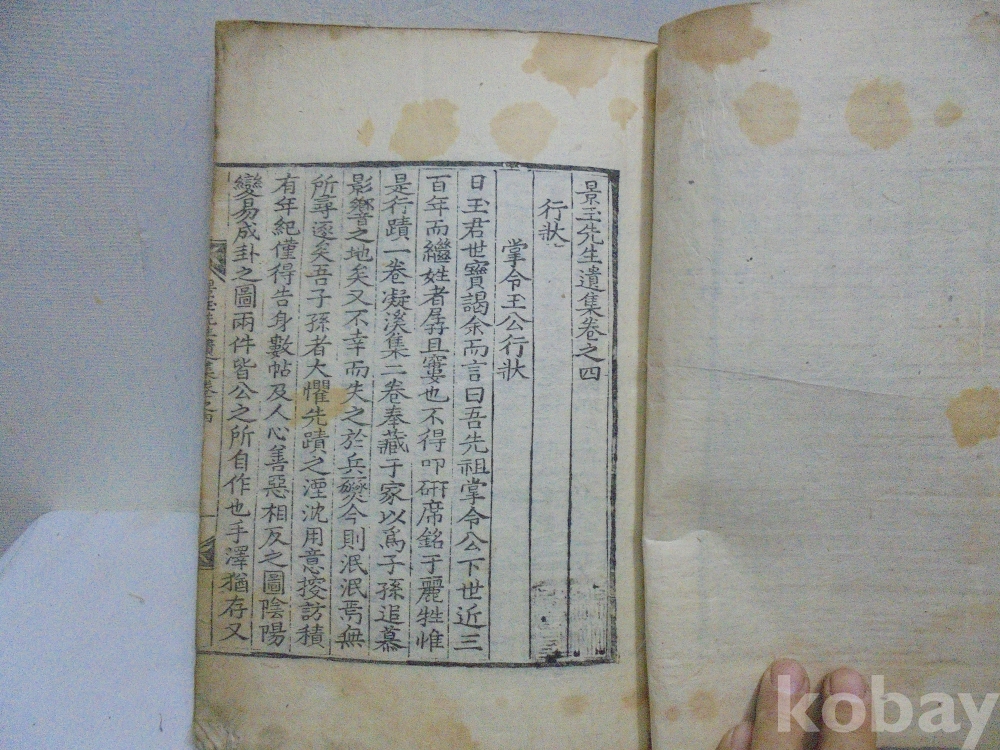 景玉先生遺集卷之四
行狀
掌令王公行狀
日王君世寶謁余而言曰吾先祖掌令公下世近三
百年而繼姓者孱且窶也不得叩硏席銘于麗牲惟
是行蹟一卷凝溪集二卷奉藏于家以爲子孫追慕
影響之地矣又不幸而失之於兵燹今則泯泯焉無
所尋逐矣吾子孫者大懼先蹟之湮沈用意搜訪積
有年紀僅得告身數帖及人心善惡相反之圖陰陽
變易成卦之圖兩件皆公之所自作也手澤猶存又
kobay